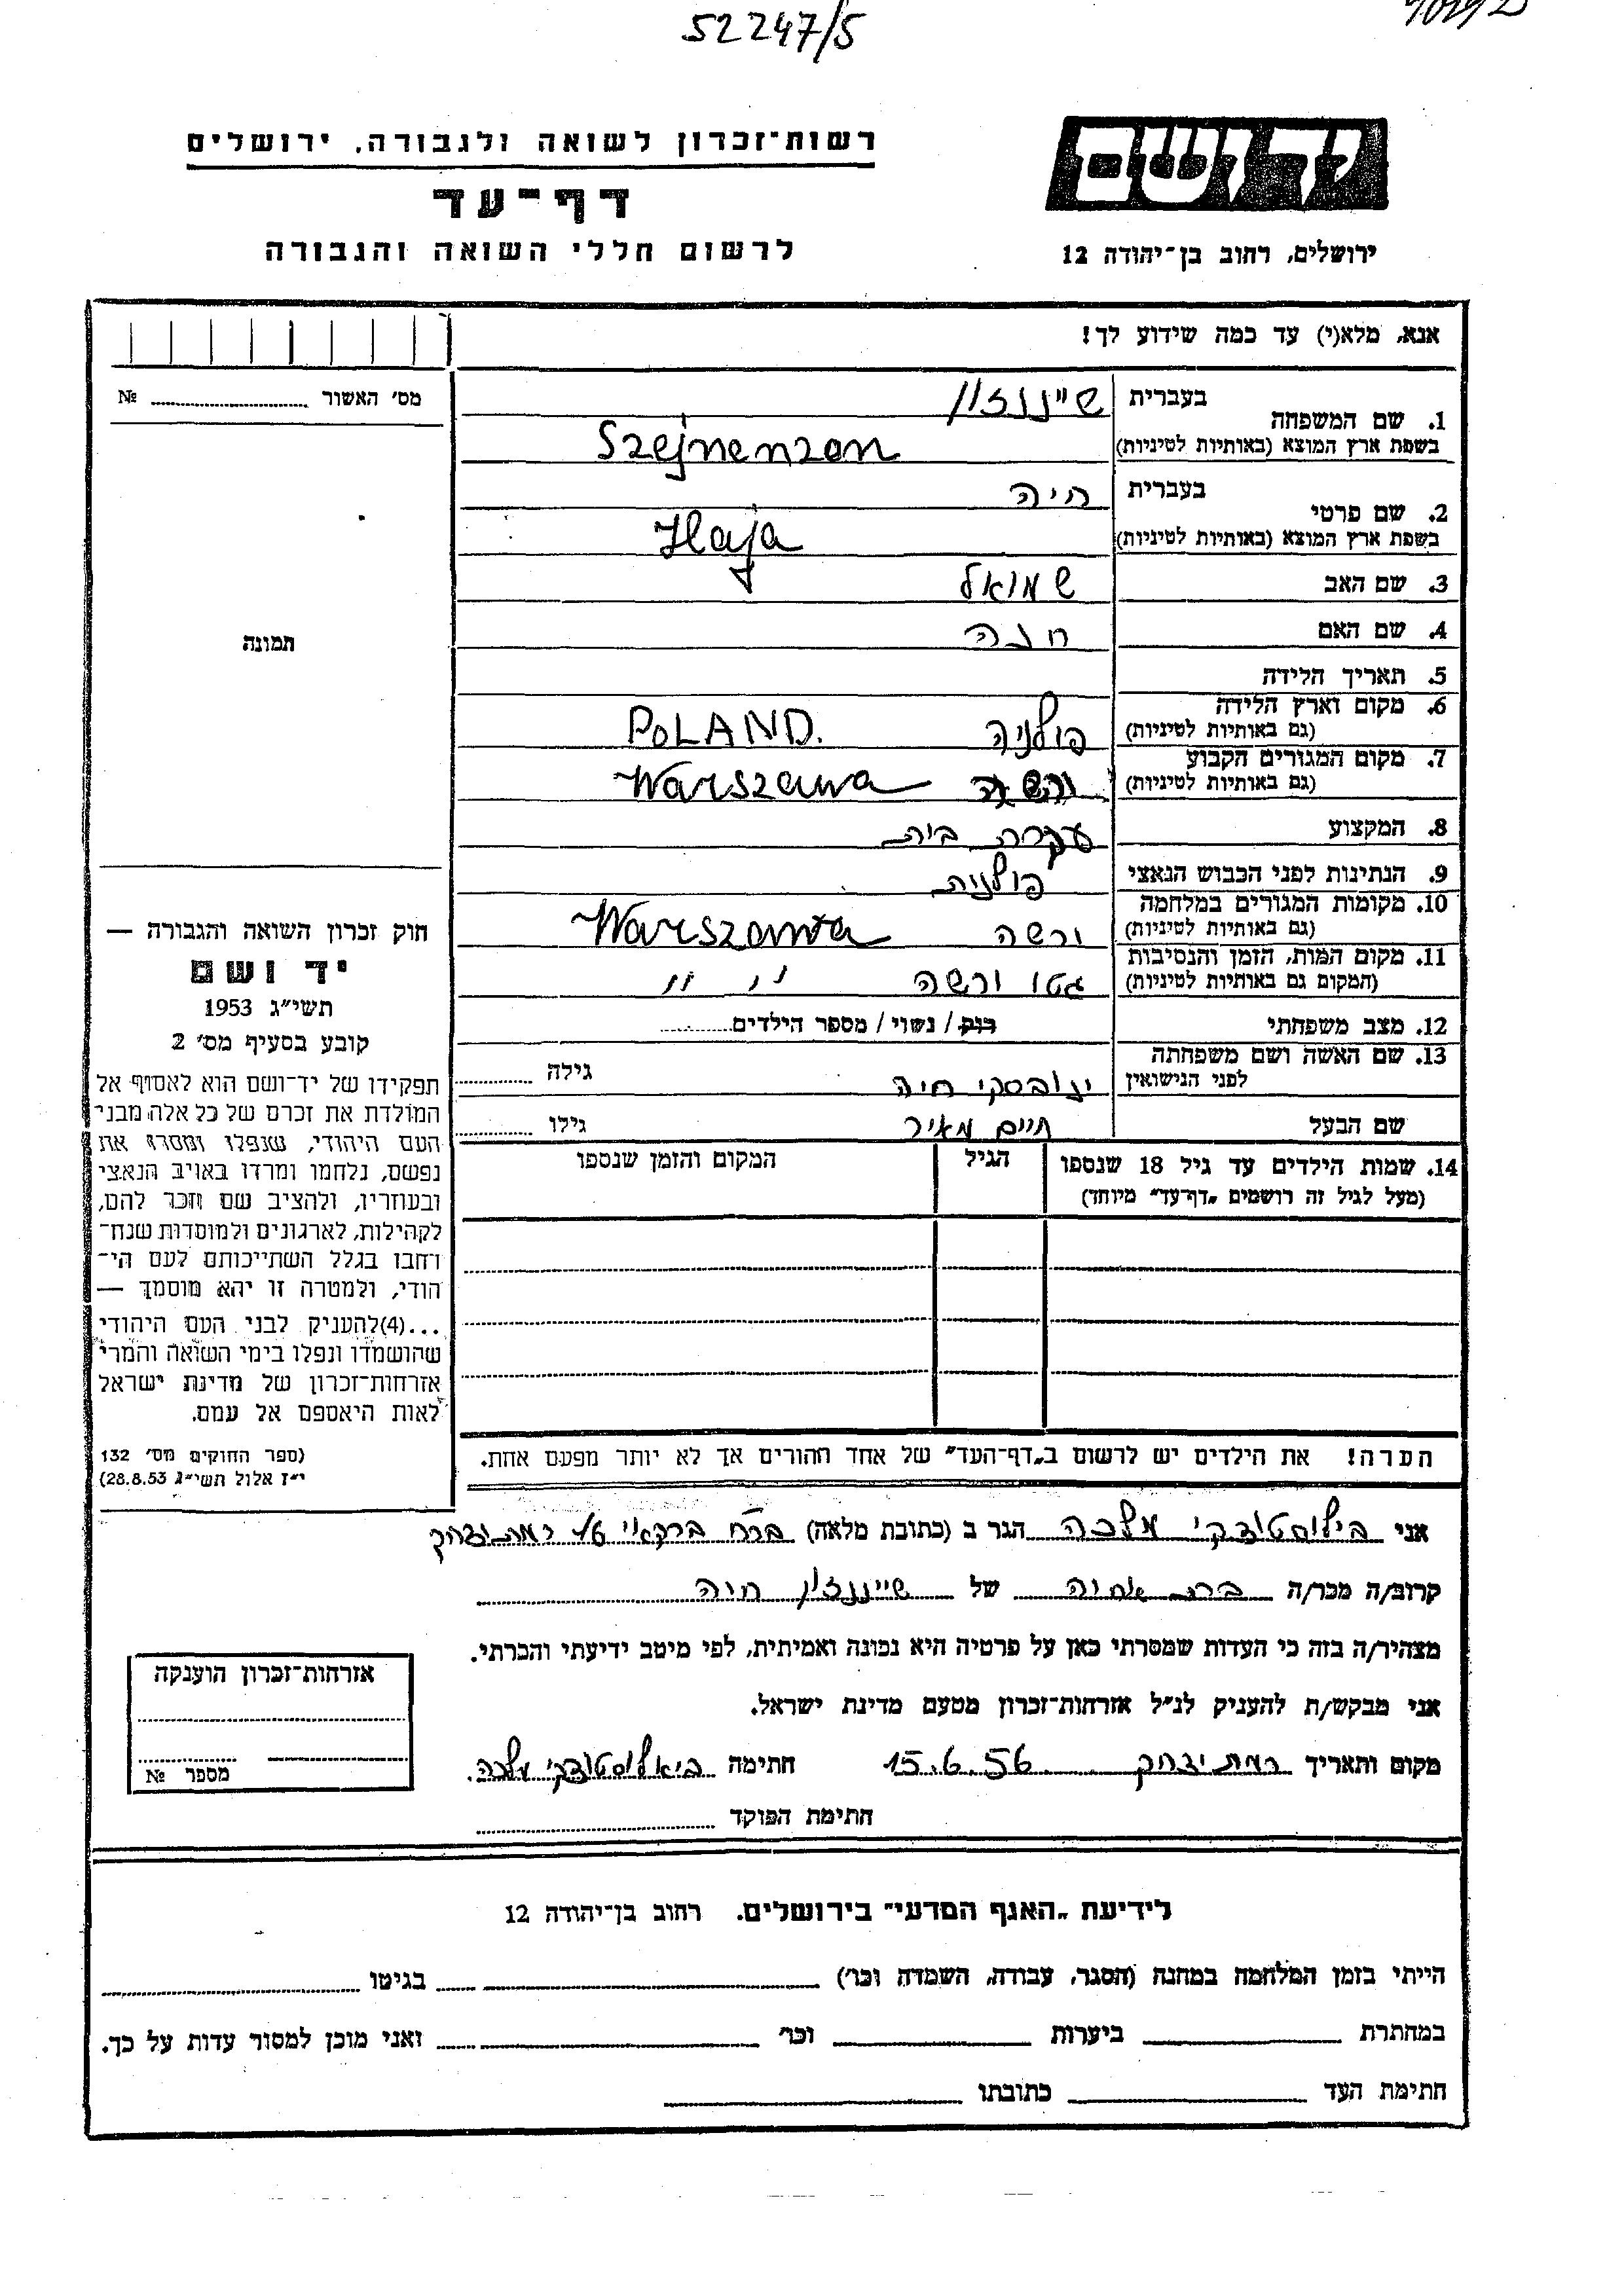 52247/5
רשות־זכרון לשואה ולגבורה, ירושלים
דף־עד
לרשום חללי השואה והגבורה
יד ושם
ירושלים, רחוב בן־יהודה 12
אנא, מלא(י) עד כמה שידוע לך!
מס׳ האשור № 
1. שם המשפחה בעברית שיינזון
בשפת ארץ המוצא (באותיות לטיניות) Szejnenzon
2. שם פרטי בעברית חיה
בשפת ארץ המוצא (באותיות לטיניות) Haja
3. שם האב שמואל
4. שם האם חנה
תמונה
5. תאריך הלידה
6. מקום וארץ הלידה (גם באותיות לטיניות) פולניה POLAND.
7. מקום המגורים הקבוע (גם באותיות לטיניות) ורשה Warszawa
8. המקצוע עקרת בית
9. הנתינות לפני הכבוש הנאצי פולנית
10. מקומות המגורים במלחמה (גם באותיות לטיניות) ורשה Warszawa
11. מקום המות, הזמן והנסיבות (המקום גם באותיות לטיניות) גטו ורשה
12. מצב משפחתי רוק / נשוי / מספר הילדים
13. שם האשה ושם משפחתה לפני הנישואין ינובסקי חיה גילה
שם הבעל חיים מאיר גילו
14. שמות הילדים עד גיל 18 שנספו הגיל המקום והזמן שנספו
(מעל לגיל זה רושמים „דף־עד״ מיוחד)
חוק זכרון השואה והגבורה —
יד ושם
תשי״ג 1953
קובע בסעיף מס׳ 2
תפקידו של יד־ושם הוא לאסוף אל
המולדת את זכרם של כל אלה מבני
העם היהודי, שנפלו ומסרו את
נפשם, נלחמו ומרדו באויב הנאצי
ובעוזריו, ולהציב שם וזכר להם,
לקהילות, לארגונים ולמוסדות שנח־
רחבו בגלל השתייכותם לעם הי־
הודי, ולמטרה זו יהא מוסמך —
...(4)להעניק לבני העם היהודי
שהושמדו ונפלו בימי השואה והמרי
אזרחות־זכרון של מדינת ישראל
לאות היאספם אל עמם.
(ספר החוקים מס׳ 132
י״ז אלול תשי״ג 28.8.53)
הערה! את הילדים יש לרשום ב„דף־העד״ של אחד ההורים אך לא יותר מפעם אחת.
אני בילוסטוצקי מלכה הגר ב (כתובת מלאה) ברקאי 16 רמת יצחק
קרוב/ה מכר/ה בת אחיה של שיינזון חיה
מצהיר/ה בזה כי העדות שמסרתי כאן על פרטיה היא נכונה ואמיתית, לפי מיטב ידיעתי והכרתי.
אני מבקש/ת להעניק לנ״ל אזרחות־זכרון מטעם מדינת ישראל.
מקום ותאריך רמת יצחק 15.6.56 חתימה ביאלוסטוצקי מלכה.
חתימת הפוקד
אזרחות־זכרון הוענקה
מספר №
לידיעת „האגף המדעי״ בירושלים. רחוב בן־יהודה 12
הייתי בזמן המלחמה במחנה (הסגר, עבודה, השמדה וכו׳) בגיטו
במחתרת ביערות וכו׳ ואני מוכן למסור עדות על כך.
חתימת העד כתובתו